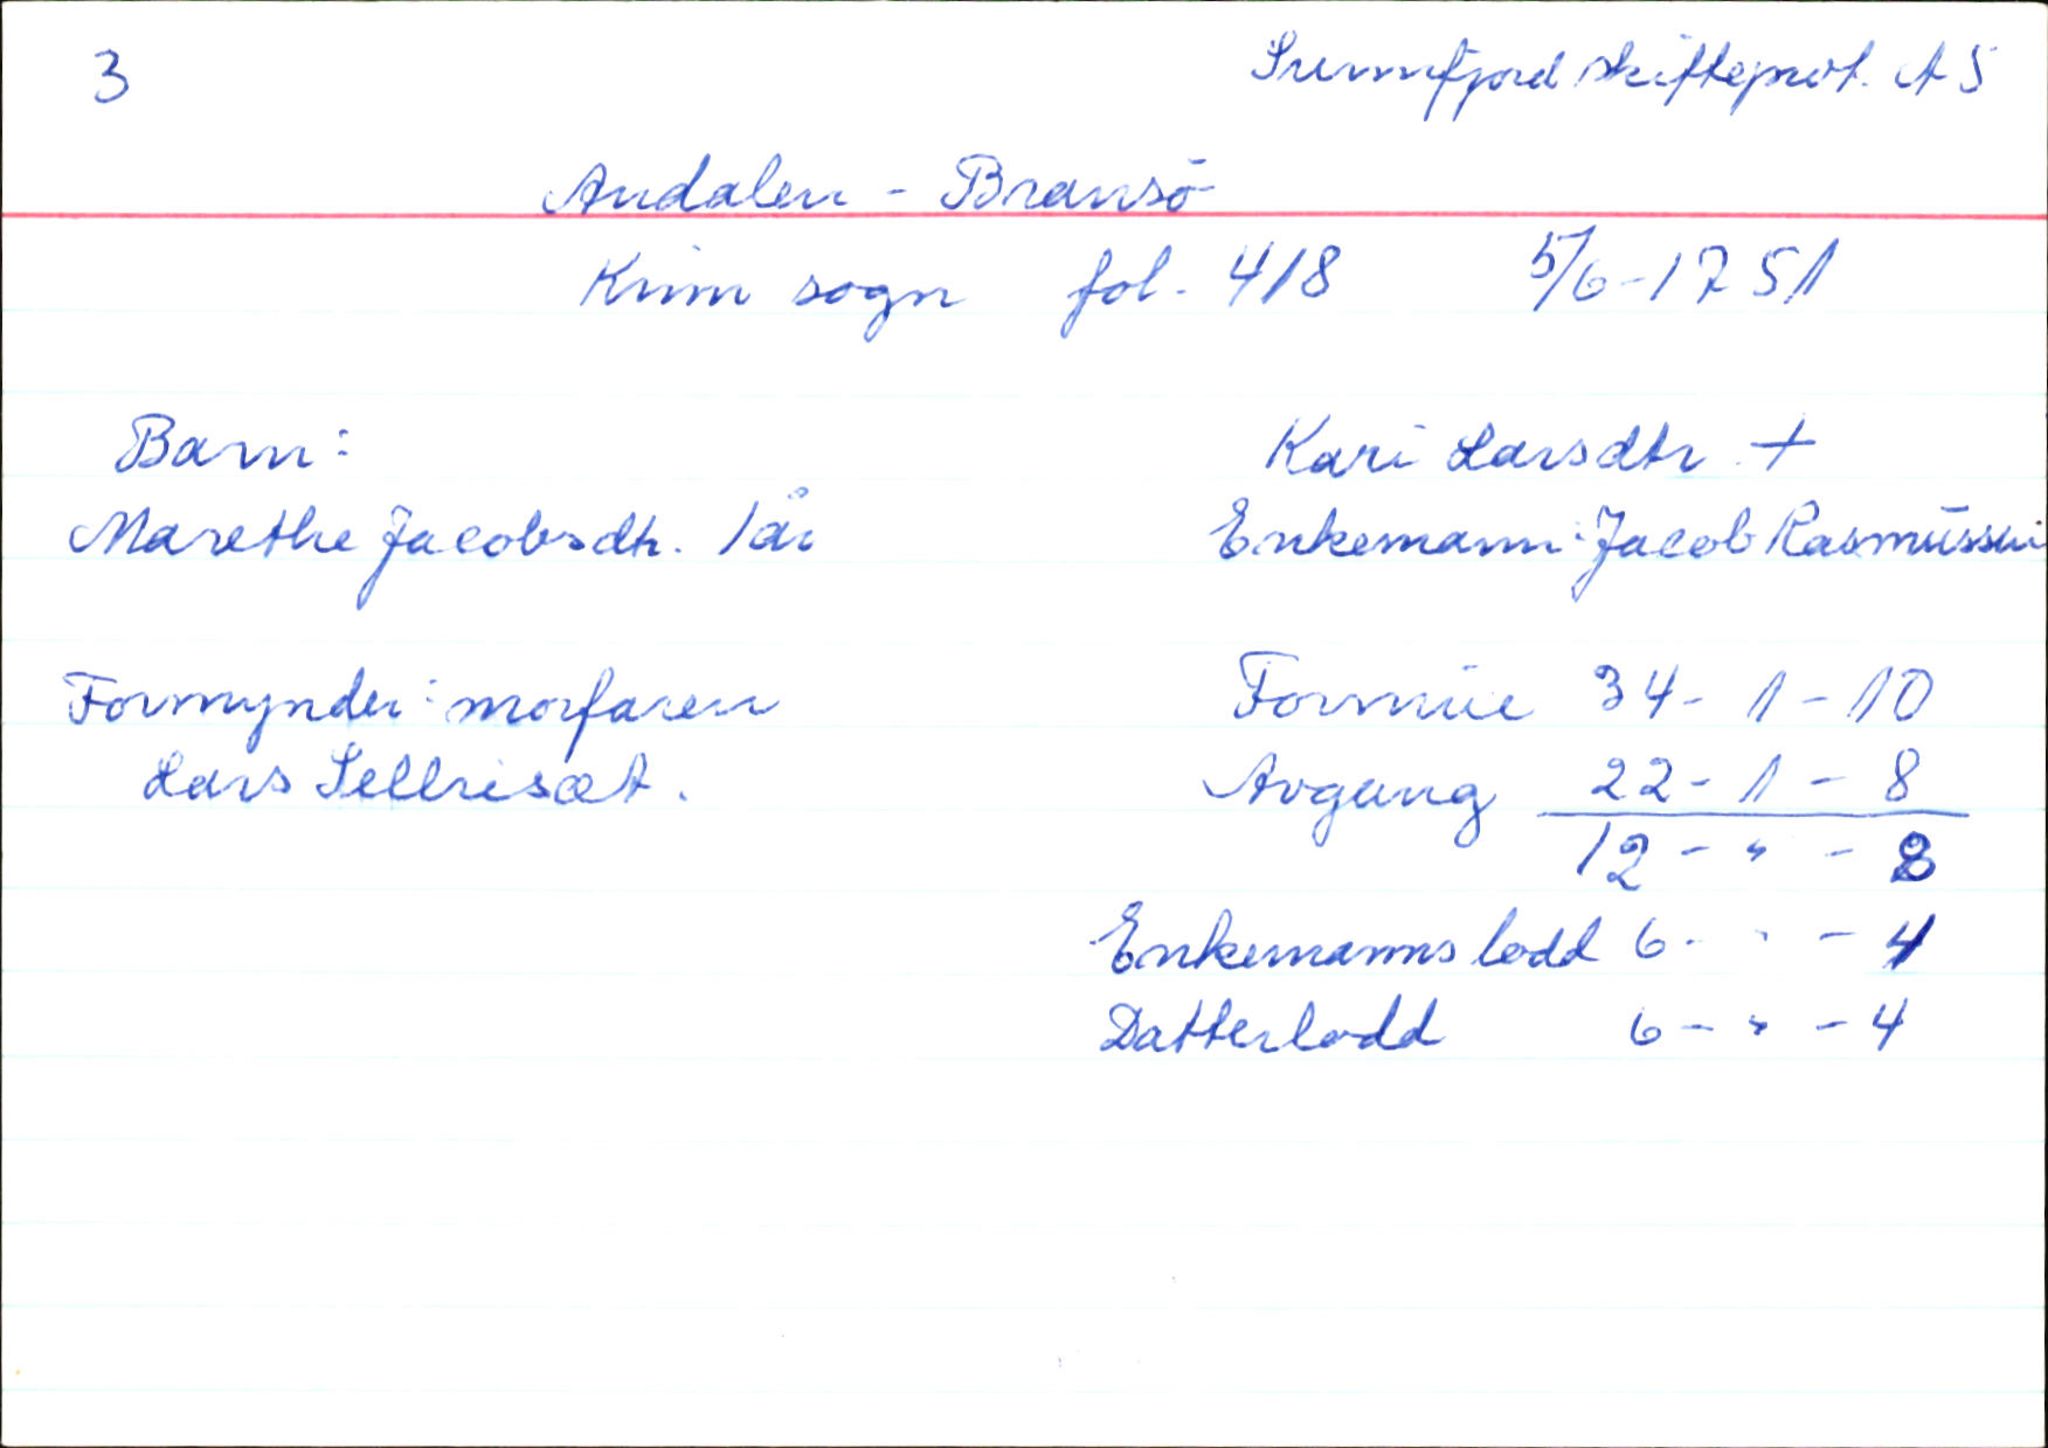 3
Sunnfjord skifteprot. A 5
Andalen - Bransö
Kinn sogn fol. 418 5/6-1751
Barn: Kari Larsdtr +
Marethe Jacobsdtr. 1 år Enkemann: Jacob Rasmussen
Formynder: morfaren Formue 34 - 1 - 10
Lars Sellrisæt. Avgang 22 - 1 - 8
12 - " - 2
Enkemanns lodd 6 - " - 4
Datterlodd 6 - " - 4